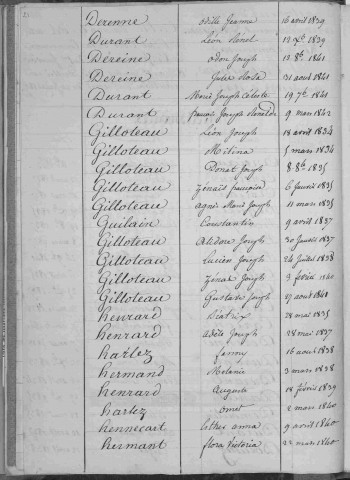 Derenne Odille Jeanne 16 avril 1839
Durant Léon Désiré 12 Xbre 1839
Dereine Odon Joseph 12 8bre 1841
Dereine Jules 31 aout 1841
Durant Marie Joseph Céleste 19 7bre 1841
Durant Joseph 9 mars 1842
Gilloteau Léon Joseph 18 avril 1834
Gilloteau Mélina 5 mars 1834
Gilloteau Donat Joseph 8 8bre 1835
Gilloteau Zénaïs françoise 6 fevrier 1835
Gilloteau Marie Joseph 11 mars 1835
Guilain Constantin 9 avril 1837
Gilloteau Alidore Joseph 30 Janvier 1837
Gilloteau Lucien Joseph 24 Juillet 1838
Gilloteau Joseph 3 fevrier 1840
Gilloteau Gustave Joseph 27 aout 1840
henrard Béatrix 28 mars 1835
henrard adèle Joseph 28 mai 1837
harlez fanny 16 aout 1838
hermand Melanie 3 mars 1838
henrard Auguste 18 février 1839
harlez omer 2 mars 1840
hennecart anna 9 avril 1840
hermant flora Victoria 22 mars 1840